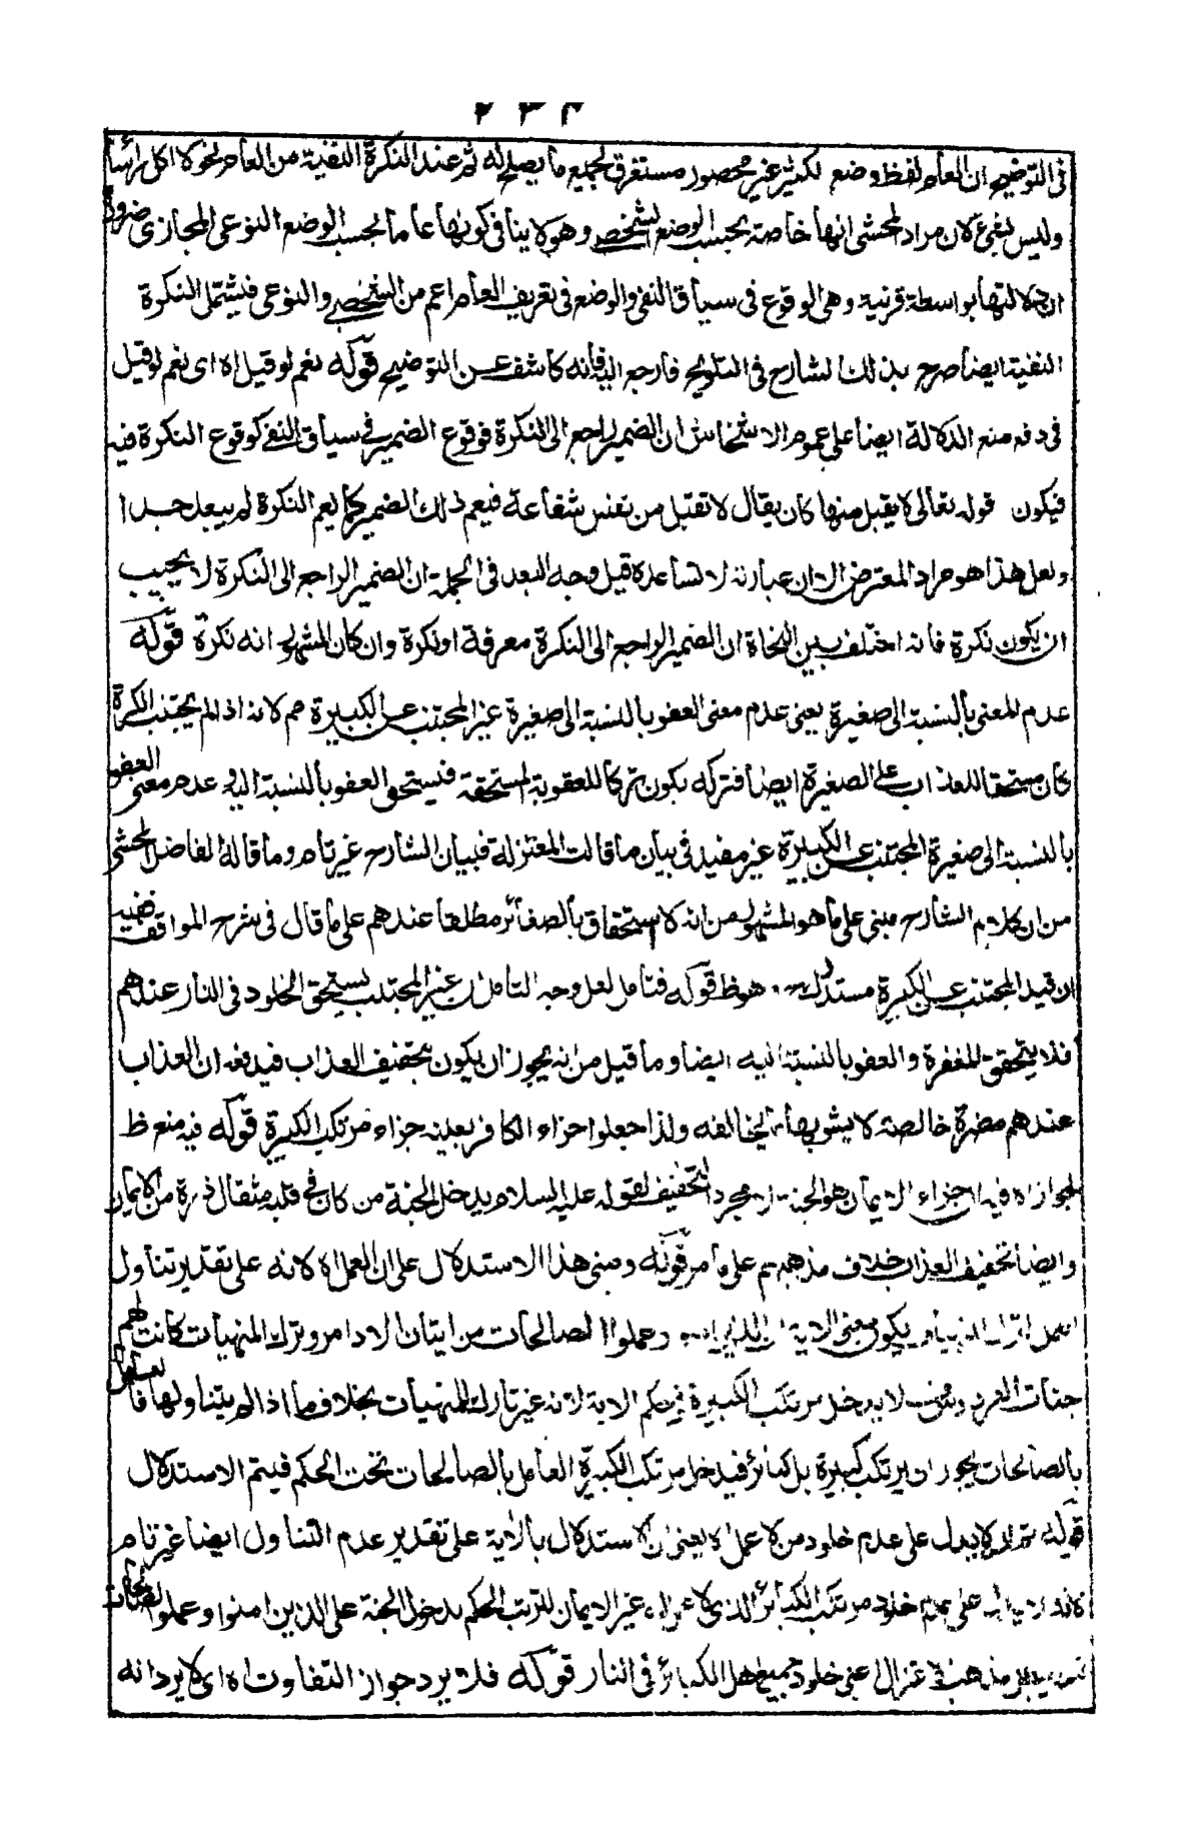 ٢٣٤
فى التوضيح ان العام لفظ وضع لكثير غير محصور مستغرق لجميع ما يصلح له ثم عند النكرة المنفية من العام نحو لا اكل رأسا
وليس بشئ لان مراد المحشى انها خاصة بحسب الوضع الشخصى وهو لا ينافى كونها عاما بحسب الوضع النوعى المجازى ضرورة
ان دلالتها بواسطة قرنية وهى الوقوع فى سياق النفى والوضع فى تعريف العام اعم من الشخصى والنوعى فيشتمل النكرة
المنفية ايضا صرح بذلك الشارح فى التلويح فارجع اليه فانه كاشف عن التوضيح قوله نعم لو قيل اه اى نعم لو قيل
فى دفع منع الدلالة ايضا على عموم الاشخاص ان الضمير راجع الى النكرة فوقوع الضمير فى سياق النفى كوقوع النكرة فيه
فيكون قوله تعالى لا يقبل منها كان يقال لا تقبل من نفس شفاعة فيعم ذلك الضمير كما يعم النكرة لم يبعد جدا
ولعل هذا هو مراد المعترض الا ان عبارته لا تساعده قيل وجه البعد فى الجملة ان الضمير الراجع الى النكرة لا يجيب
ان يكون نكرة فانه اختلف بين النحاة ان الضمير الراجع الى النكرة معرفة او نكرة وان كان المشهور انه نكرة قوله
عدم المعنى بالنسبة الى صغيرة يعنى عدم معنى العفو بالنسبة الى صغيرة غير المجتنب عن الكبيرة مم لانه اذا لم يجتنب الكبيرة
كان مستحقا للعذاب على الصغيرة ايضا فتركه يكون تركا للعقوبة المستحقة فيستحق العفو بالنسبة اليه وعدم معنى العفو
بالنسبة الى صغيرة المجتنب عن الكبيرة غير مفيد فى بيان ما قالت المعتزلة فبيان الشارح غير تام وما قاله الفاضل المحشى
من ان كلام الشارح مبنى على ما هو المشهور من انه لا استحقاق بالصغائر مطلقا عندهم على ما قال فى شرح المواقف ففيه
ان قيد المجتنب عن الكبيرة مستدرك هو ظ قوله فتامل لعل وجه التامل ان غير المجتنب يستحق الخلود فى النار عندهم
فلا يتحقق المغفرة والعفو بالنسبة اليه ايضا وما قيل من انه يجوز ان يكون بتخفيف العذاب فيدفعه ان العذاب
عندهم مضرة خالصة لا يشوبها ما يخالفه ولذا جعلوا جزاء الكافر بعينه جزاء مرتكب الكبيرة قوله فيه منع ظ
لجوازه فيه ان جزاء الايمان هو الجنة لا مجرد التخفيف لقوله عليه السلام يدخل الجنة من كان فى قلبه مثقال ذرة من الايمان
وايضا تخفيف العذاب خلاف مذهبهم على ما مر قوله ومبنى هذا الاستدلال على ان العمل اه لانه على تقدير تناول
العمل يكون معنى الاية ان الذين وعملوا الصالحات من ايتان الاوامر وترك المنهيات كانت لهم
جنات الفردوس لا يدخل مرتكب الكبيرة فى حكم الاية لانه غير تارك للمنهيات بخلاف ما اذا لم يتناولها فالعامل
بالصالحات يجوز ان يرتكب كبيرة بل كبائر فيدخل مرتكب الكبيرة العامل بالصالحات تحت الحكم فيتم الاستدلال
قوله لا يدل على عدم خلود من لا عمل له يعنى ان الاستدلال بالاية على تقدير عدم التناول ايضا غير تام
لانه لا يدل على عدم خلود مرتكب الكبائر الذى لا عمل له غير الايمان لترتب الحكم بدخول الجنة على الذين امنوا وعملوا الصالحات
مذهب الاعتزال اعنى خلود جميع اهل الكبائر فى النار قوله فلا يرد جواز التفاوت اه اى لا يرد انه